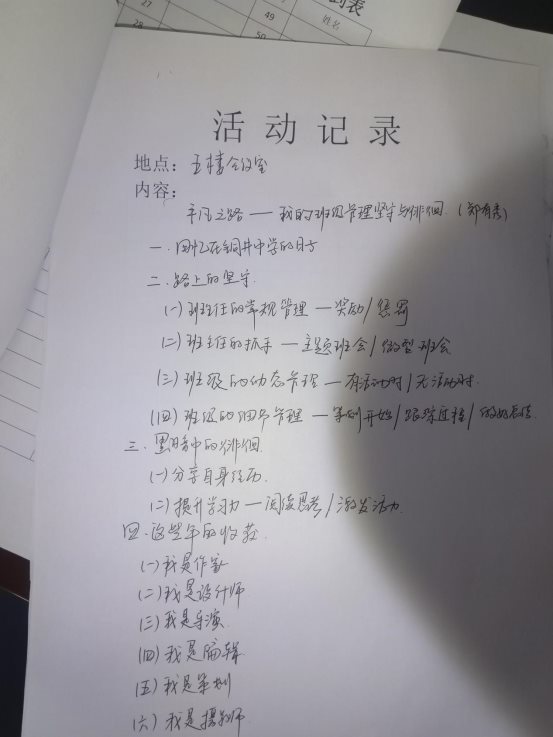 到表
27
28
49
50
姓名
活动记录
地点：五楼会议室
内容：
平凡之路 — 我的班级管理坚守与徘徊（郑有秀）
一、回忆在铜井中学的日子
二、路上的坚守
（一）班主任的常规管理 — 奖励/惩罚
（二）班主任的抓手 — 主题班会/微型班会
（三）班级的动态管理 — 有活动时/无活动时
（四）班级的细节管理 — 策划开始/跟踪过程/做好总结
三、黑暗中的徘徊
（一）分享自身经历
（二）提升学习力 — 阅读思考/激发活力
四、这些年的收获
（一）我是作家
（二）我是设计师
（三）我是导演
（四）我是编辑
（五）我是策划
（六）我是摄影师